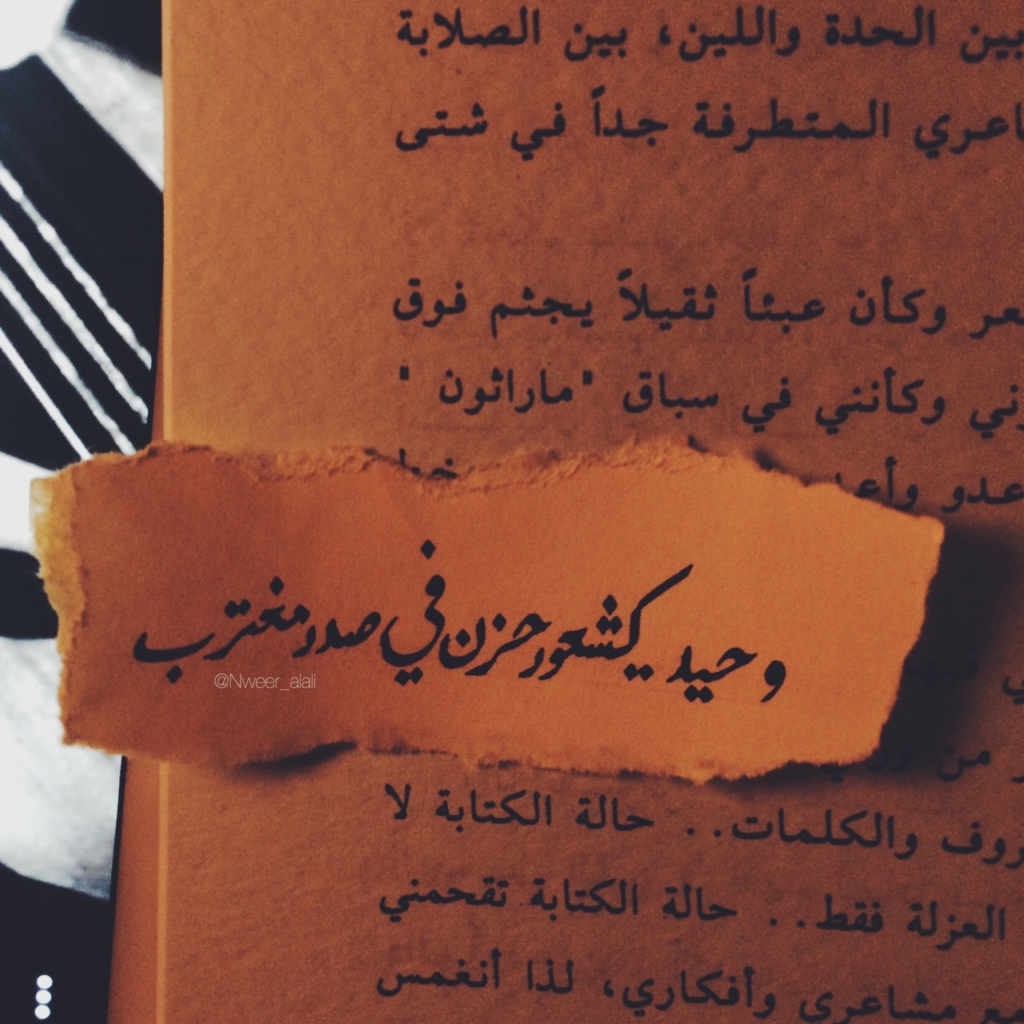 بين الحدة واللين، بين الصلابة
المتطرفة جداً في شتى
وكأن عبئاً ثقيلاً يجثم فوق
وكأنني في سباق "ماراثون"
وحيد كشعور حزن في صدر مغترب
@Nweer_alali
من
والكلمات.. حالة الكتابة لا
العزلة فقط.. حالة الكتابة تقحمني
مشاعري وأفكاري، لذا أنغمس